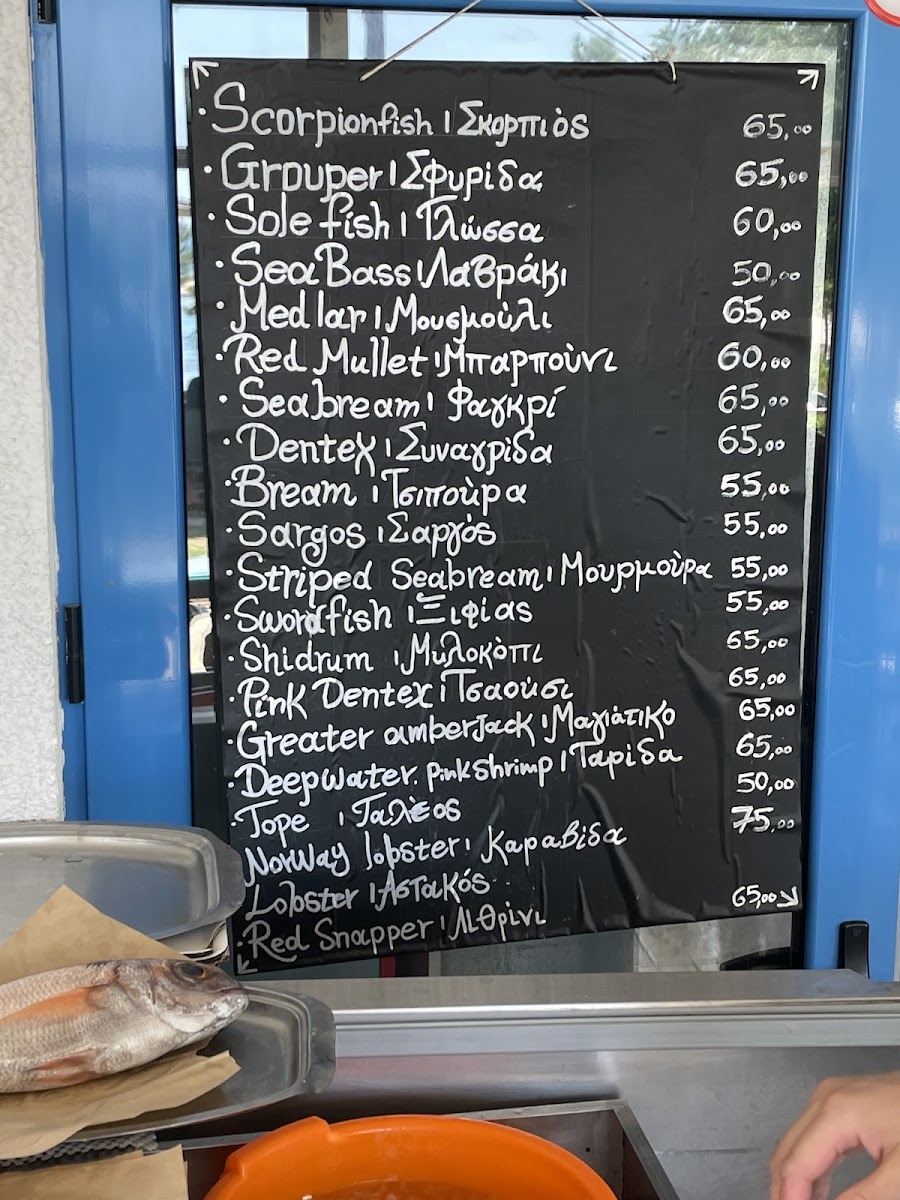 · Scorpionfish | Σκορπιός 65,00
· Grouper | Σφυρίδα 65,00
· Sole fish | Γλώσσα 60,00
· Sea Bass | Λαβράκι 50,00
· Medlar | Μουσμούλι 65,00
· Red Mullet | Μπαρπούνι 60,00
· Seabream | Φαγκρί 65,00
· Dentex | Συναγρίδα 65,00
· Bream | Τσιπούρα 55,00
· Sargos | Σαργός 55,00
· Striped Seabream | Μουρμούρα 55,00
· Swordfish | Ξιφίας 55,00
· Shidrum | Μυλοκόπι 65,00
· Pink Dentex | Τσαούσι 65,00
· Greater amberjack | Μαγιάτικο 65,00
· Deepwater. pink shrimp | Γαρίδα 65,00
· Tope | Γαλέος 50,00
· Norway lobster | Καραβίδα 75,00
· Lobster | Αστακός
· Red Snapper | Λιθρίνι 65,00